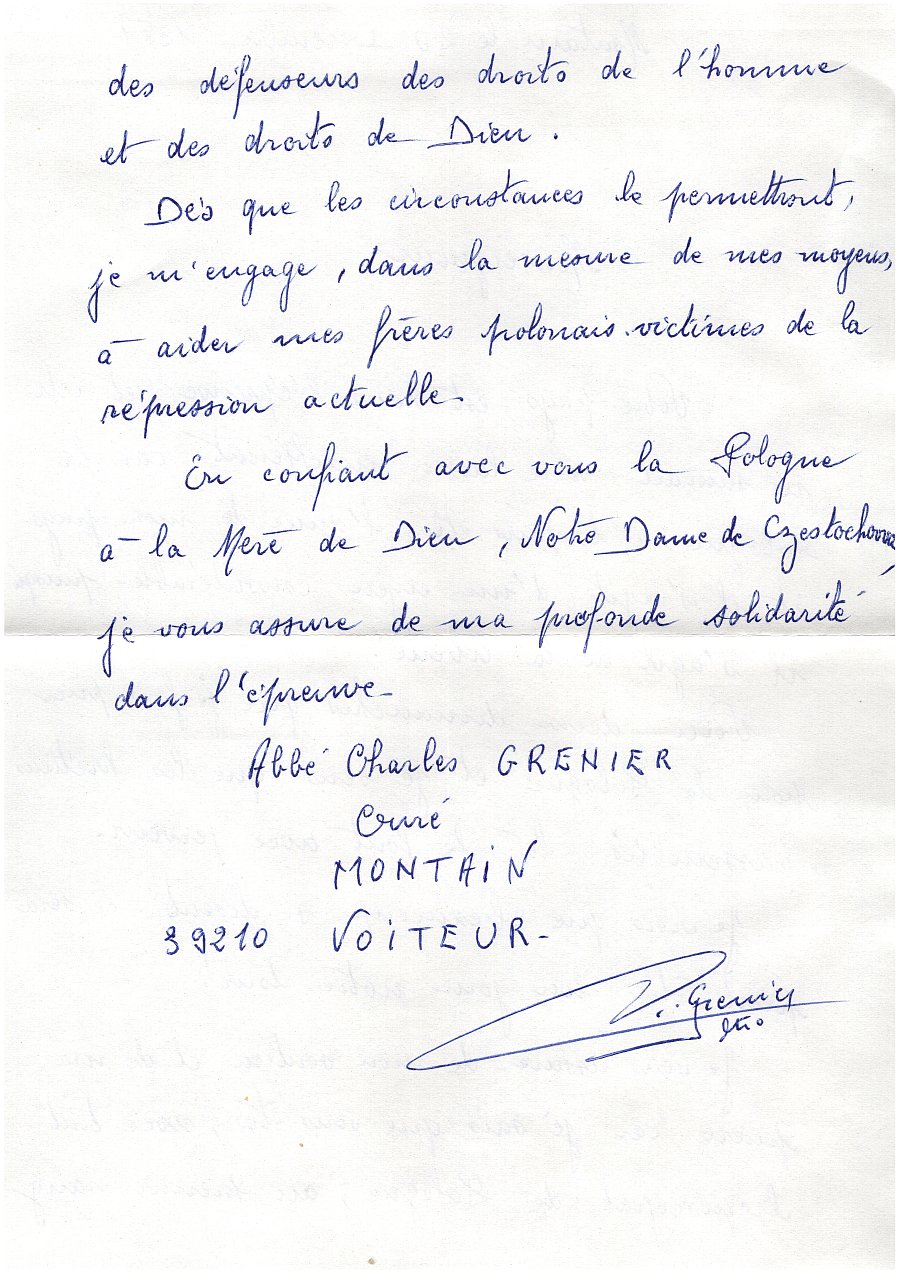 des défenseurs des droits de l'homme
et des droits de Dieu.
Dès que les circonstances le permettront,
je m'engage, dans la mesure de mes moyens,
à aider mes frères polonais victimes de la
répression actuelle.
En confiant avec vous la Pologne
à la Mère de Dieu, Notre Dame de Czestochowa,
je vous assure de ma profonde solidarité
dans l'épreuve.
Abbé Charles GRENIER
Curé
MONTAIN
39210 VOITEUR-
Grenier